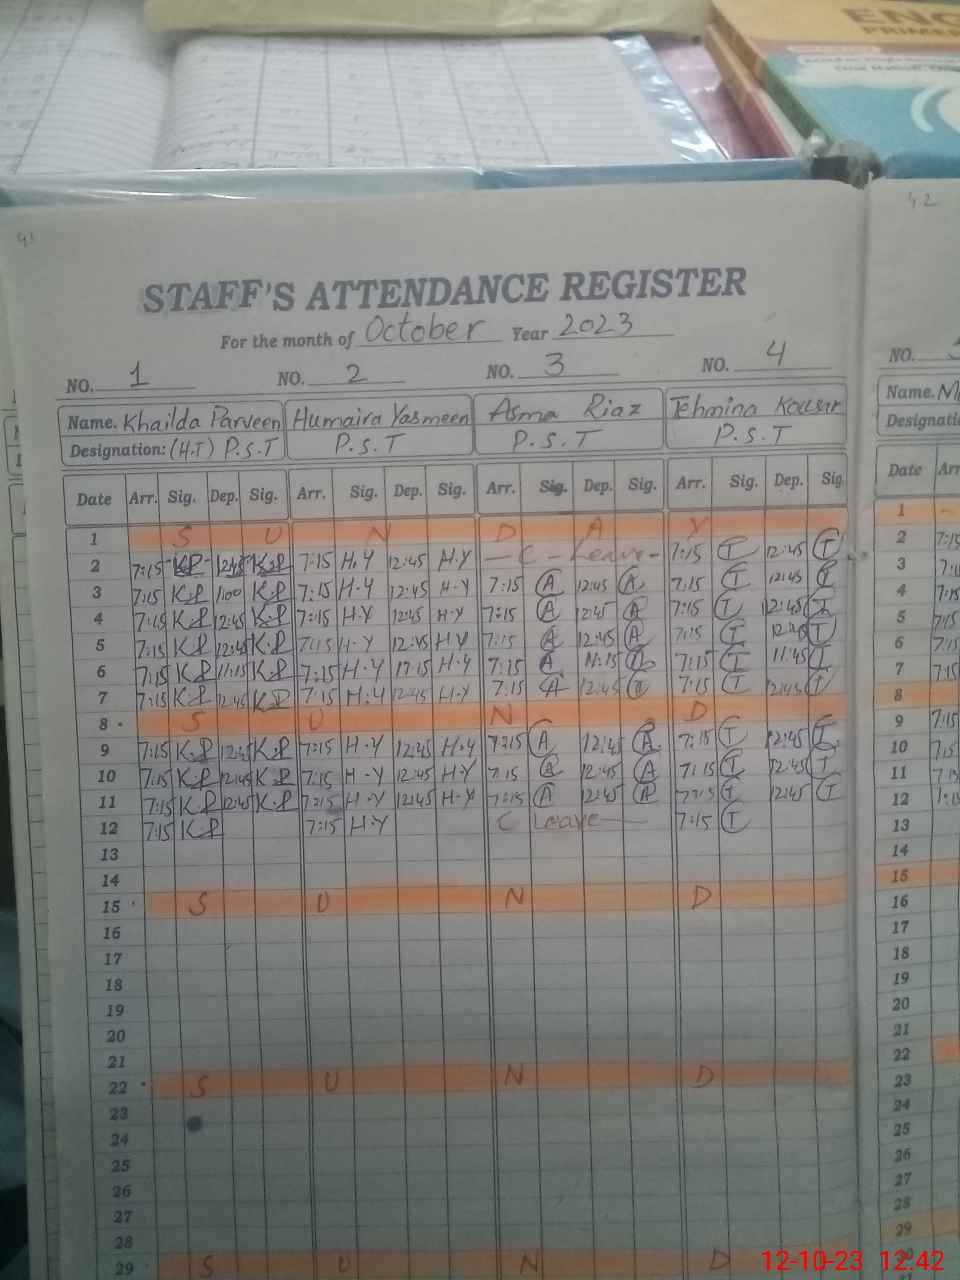 ENG
PRIME
41
42
STAFF'S ATTENDANCE REGISTER
For the month of October Year 2023
NO. 1 NO. 2 NO. 3 NO. 4
NO.
Name. Khailda Parveen Humaira Yasmeen Asma Riaz Tehmina Kousar
Name. M
Designation: (H.T) P.S.T P.S.T P.S.T P.S.T
Designati
Date Arr. Sig. Dep. Sig. Arr. Sig. Dep. Sig. Arr. Sig. Dep. Sig. Arr. Sig. Dep. Sig
Date Arr
1 S U N D A Y
2 7:15 K.P 12:45 K.P 7:15 H.Y 12:45 H.Y — C - Leave - 7:15 T 12:45 T
3 7:15 K.P 1:00 K.P 7:15 H.Y 12:45 H-Y 7:15 A 12:45 A 7:15 T 12:45 T
4 7:15 K.P 12:45 K.P 7:15 H.Y 12:45 H-Y 7:15 A 12:45 A 7:15 T 12:45 T
5 7:15 K.P 12:45 K.P 7:15 H-Y 12:45 H.Y 7:15 A 12:45 A 7:15 T 12:45 T
6 7:15 K.P 11:15 K.P 7:15 H.Y H.Y 7:15 A 11:15 7:15 T 11:45 T
7 7:15 K.P 12:45 K.P 7:15 H.Y 12:45 H.Y 7:15 A 12:45 7:15 T 12:45 T
8 S U N D
9 7:15 K.P 12:45 K.P 7:15 H-Y 12:45 H.Y 7:15 A 12:45 A 7:15 T 12:45 T
10 7:15 K.P 12:45 K.P 7:15 H-Y 12:45 H.Y 7:15 A 12:45 A 7:15 T 12:45 T
11 7:15 K.P 12:45 K.P 7:15 H-Y 12:45 H-Y 7:15 A 12:45 A 7:15 T 12:45 T
12 7:15 K.P 7:15 H.Y C Leave — 7:15 T
13
14
15 S U N D
16
17
18
19
20
21
22 S U N D
23
24
25
26
27
28
29 S U N D
1
2 7:15
3
4 7:15
5 7:15
6 7:15
7 7:15
8
9 7:15
10 7:15
11 7:15
12
13
14
15
16
17
18
19
20
21
22
23
24
25
26
27
28
29
12-10-23 12:42